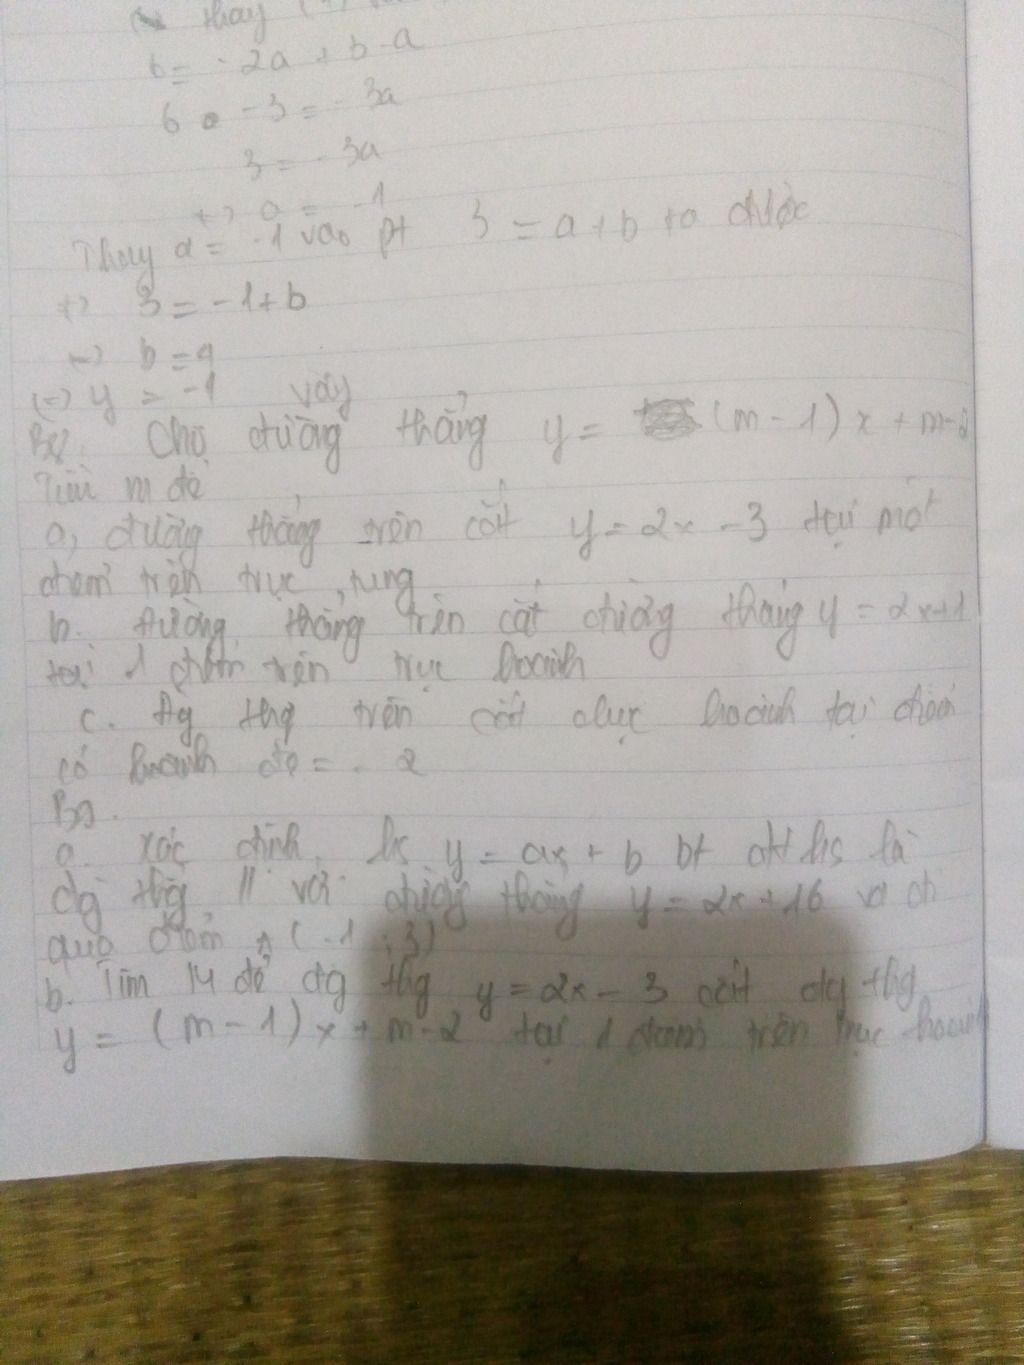 thay
6 = -2a + b - a
6 - 3 = -3a
3 = -3a
<=> a = -1
Thay a = -1 vào pt 3 = a + b ta được
<=> 3 = -1 + b
<=> b = 4
<=> y = -1 vậy
Cho đường thẳng y = (m - 1)x + m-2
Tìm m để
a, đường thẳng trên cắt y = 2x - 3 tại một
điểm trên trục tung
b. đường thẳng trên cắt đường thẳng y = 2x+1
tại 1 điểm trên trục hoành
c. đg thg trên cắt trục hoành tại điểm
có hoành độ = - 2
B3.
a. xác định hs y = ax + b bt đt hs là
đg thg // với đường thẳng y = 2x + 16 và đi
qua điểm A (-1 ; 3)
b. Tìm M để đg thg y = 2x - 3 cắt đg thg
y = (m - 1) x + m - 2 tại 1 điểm trên trục hoành